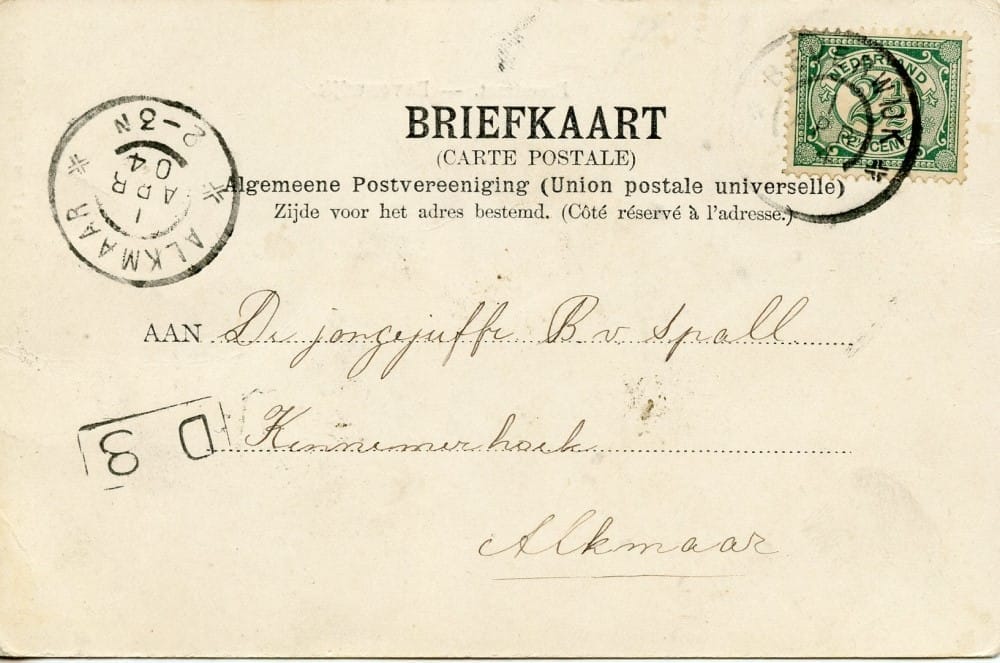 BRIEFKAART
(CARTE POSTALE)
Algemeene Postvereeniging (Union postale universelle)
Zijde voor het adres bestemd. (Côté réservé à l'adresse.)
NEDERLAND
2½
2½ CENT
ALKMAAR
1 APR 04
2-3 N
AAN De jongejuffr B v Spall
Kennemerhoek
Alkmaar
D 3